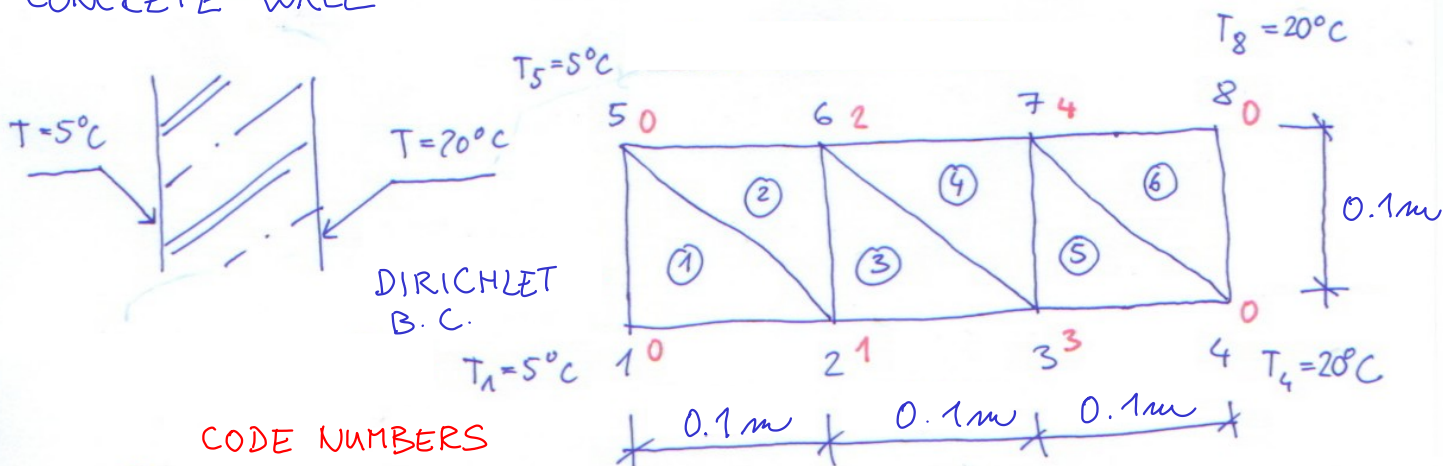 CONCRETE WALL
T=5°C
T=20°C
DIRICHLET
B.C.
CODE NUMBERS
T5=5°C
T8=20°C
5 0
6 2
7 4
8 0
①
②
③
④
⑤
⑥
0.1m
T1=5°C
1 0
2 1
3 3
4 0
T4=20°C
0.1m
0.1m
0.1m